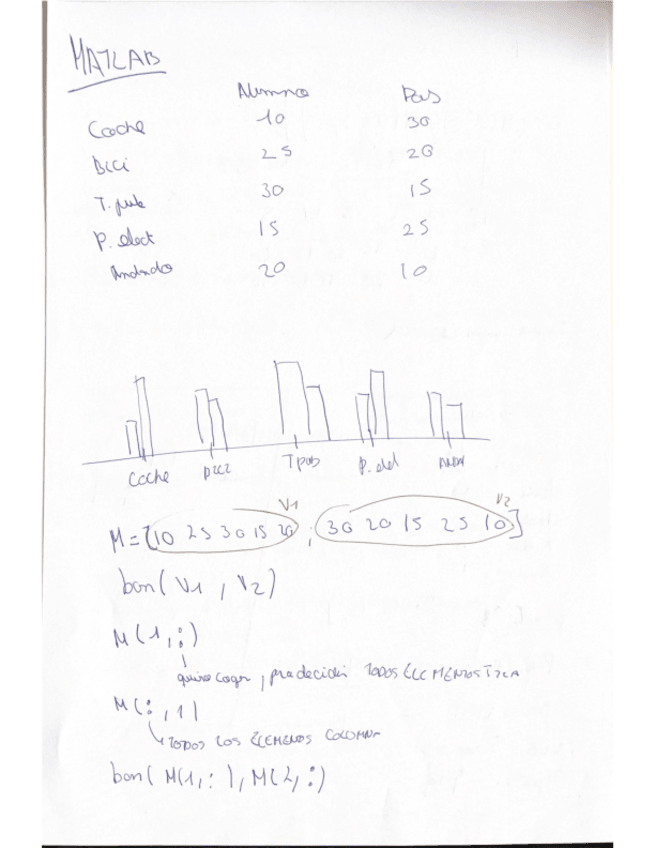 MATLAB
Alumno Pas
Coche 10 30
Bici 25 20
T. pub 30 15
P. elect 15 25
Andando 20 10
Coche Bici T pub P. el And
V1 V2
M = [10 25 30 15 20 ; 30 20 15 25 10]
bar( V1 , V2 )
M(1,:)
quiero coger , pra decidir TODOS ELEMENTOS FILA
M(: ,1)
TODOS LOS ELEMENOS COLUMNA
bar( M(1,: ), M(2, :)